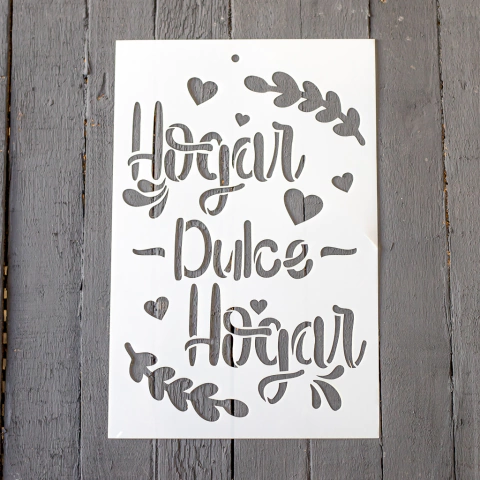 Hogar
Dulce
Hogar